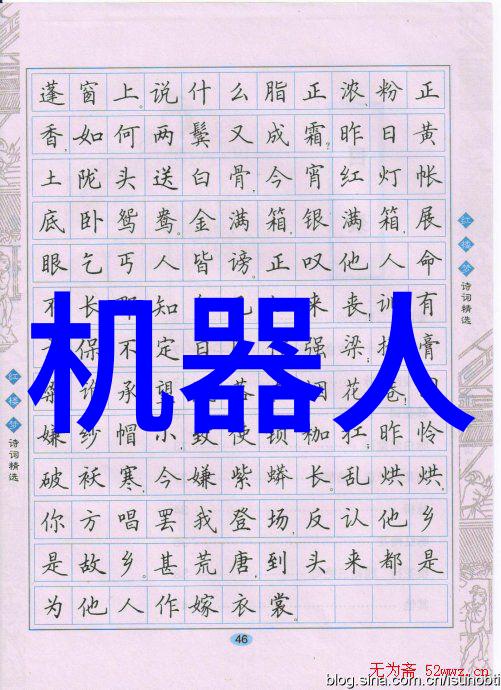 蓬窗上。说什么脂正浓、粉正
香,如何两鬓又成霜?昨日黄
土陇头送白骨,今宵红灯帐
底卧鸳鸯。金满箱,银满箱,展
眼乞丐人皆谤。正叹他人命
不长知来丧!训有
保不定日强梁。择膏
承望花巷!
嫌纱帽小,致使锁枷扛。昨怜
破袄寒,今嫌紫蟒长。乱烘烘,
你方唱罢我登场,反认他乡
是故乡。甚荒唐,到头来都是
为他人作嫁衣裳。
机器人
红楼梦诗词精选
红楼梦诗词精选
46
无为斋 52wwz.cn
blog.sina.com.cn/isunobti